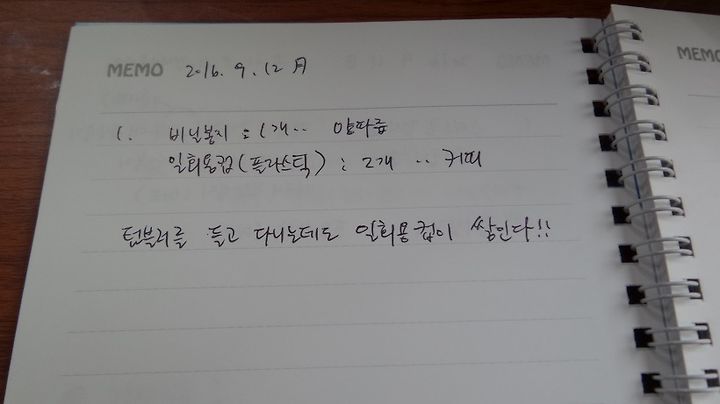 MEMO 2016. 9. 12 月
1. 비닐봉지 : 1개.. 양파즙
일회용컵(플라스틱) : 2개 .. 커피
텀블러를 들고 다니는데도 일회용컵이 쌓인다!!
MEMO